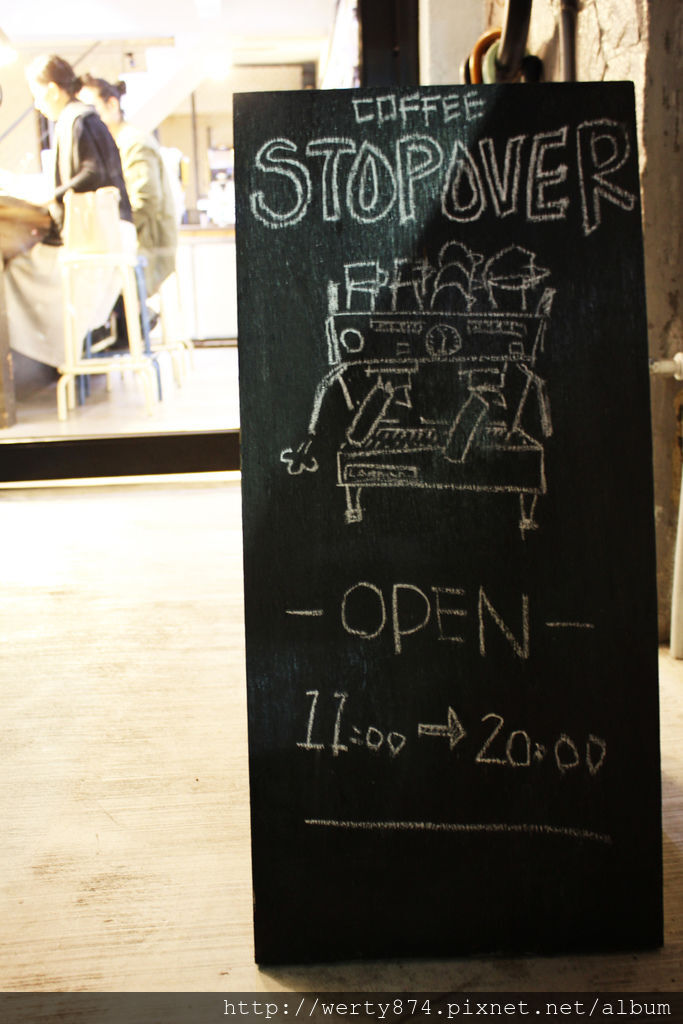 COFFEE
STOPOVER
- OPEN -
11:00 → 20:00
http://werty874.pixnet.net/album